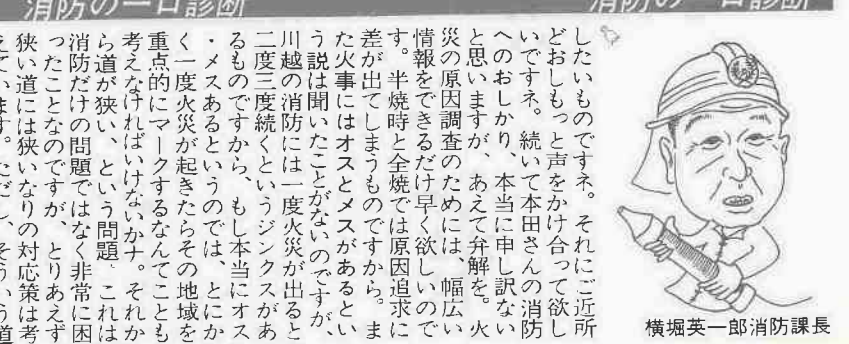 消防の一口診断
消防の一口診断
横堀英一郎消防課長
したいものですネ。それにご近所
どおしもっと声をかけ合って欲し
いですネ。続いて本田さんの消防
へのおしかり、本当に申し訳ない
と思いますが、あえて弁解を。火
災の原因調査のためには、幅広い
情報をできるだけ早く欲しいので
す。半焼時と全焼では原因追求に
差が出てしまうものですから。ま
た火事にはオスとメスがあるとい
う説は聞いたことがないのですが、
川越の消防には一度火災が出ると
二度三度続くというジンクスがあ
るものですから、もし本当にオス
・メスあるというのでは、とにか
く一度火災が起きたらその地域を
重点的にマークするなんてことも
考えなければいけないかナ。それか
ら道が狭い、という問題、これは
消防だけの問題ではなく非常に困
ったことなのですが、とりあえず
狭い道には狭いなりの対応策は考
えています。ただし、そういう道